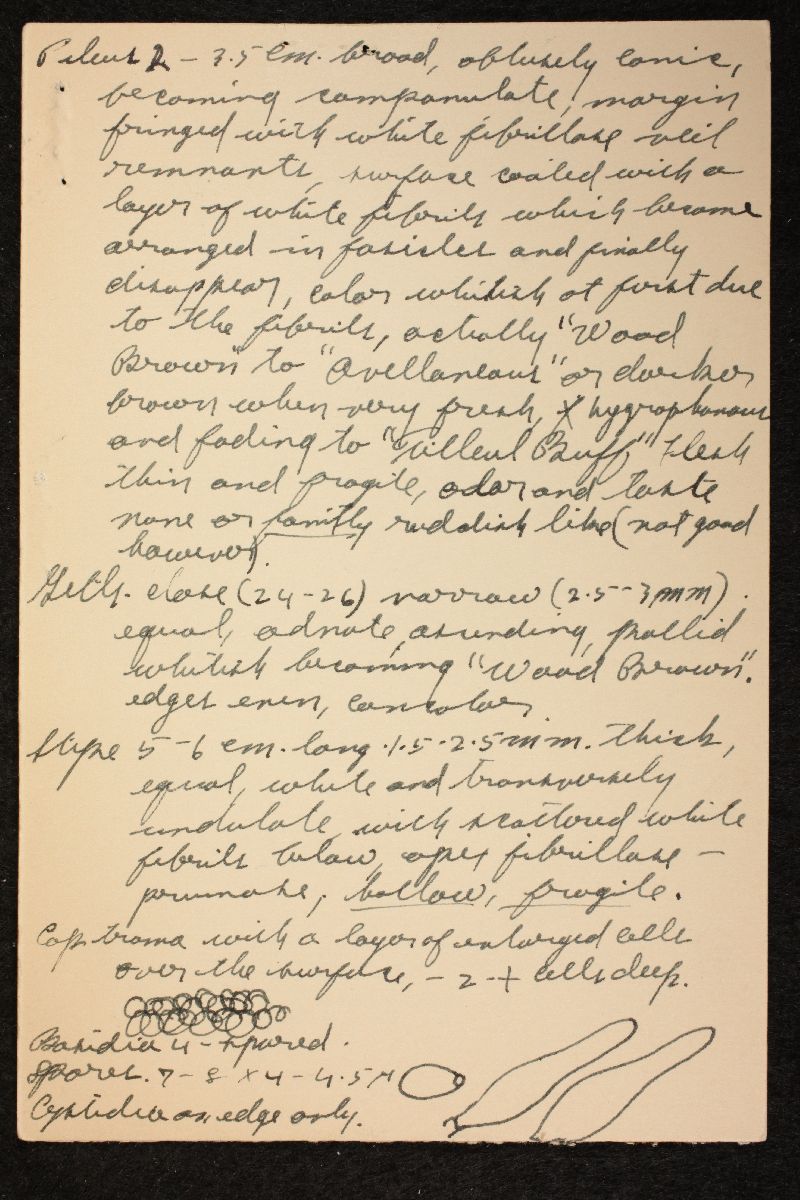 Pileus 2 - 3.5 cm. broad, obtusely conic,
becoming campanulate, margin
fringed with white fibrillose veil
remnants, surface coated with a
layer of white fibrils which become
arranged in fasicles and finally
disappear, color whitish at first due
to the fibrils, actually "Wood
Brown" to "Avellaneous" or darker
brown when very fresh, hygrophanous
and fading to "Tilleul Buff," Flesh
thin and fragile, odor and taste
none or faintly raddish like (not good
however).
Gills. close (24-26) narrow (2.5-3mm).
equal, adnate, ascending, pallid
whitish becoming "Wood Brown".
edges even, concolor
Stipe 5-6 cm. long. 1.5-2.5mm. thick,
equal, white and transversely
undulate with scattered white
fibrils below, apex fibrillose -
pruinose, hollow, fragile.
Cap trama with a layer of enlarged cells
over the surface, - 2-+ cells deep.
Basidia 4-spored.
Spores. 7-8 x 4-4.5 M
Cystidia on edge only.